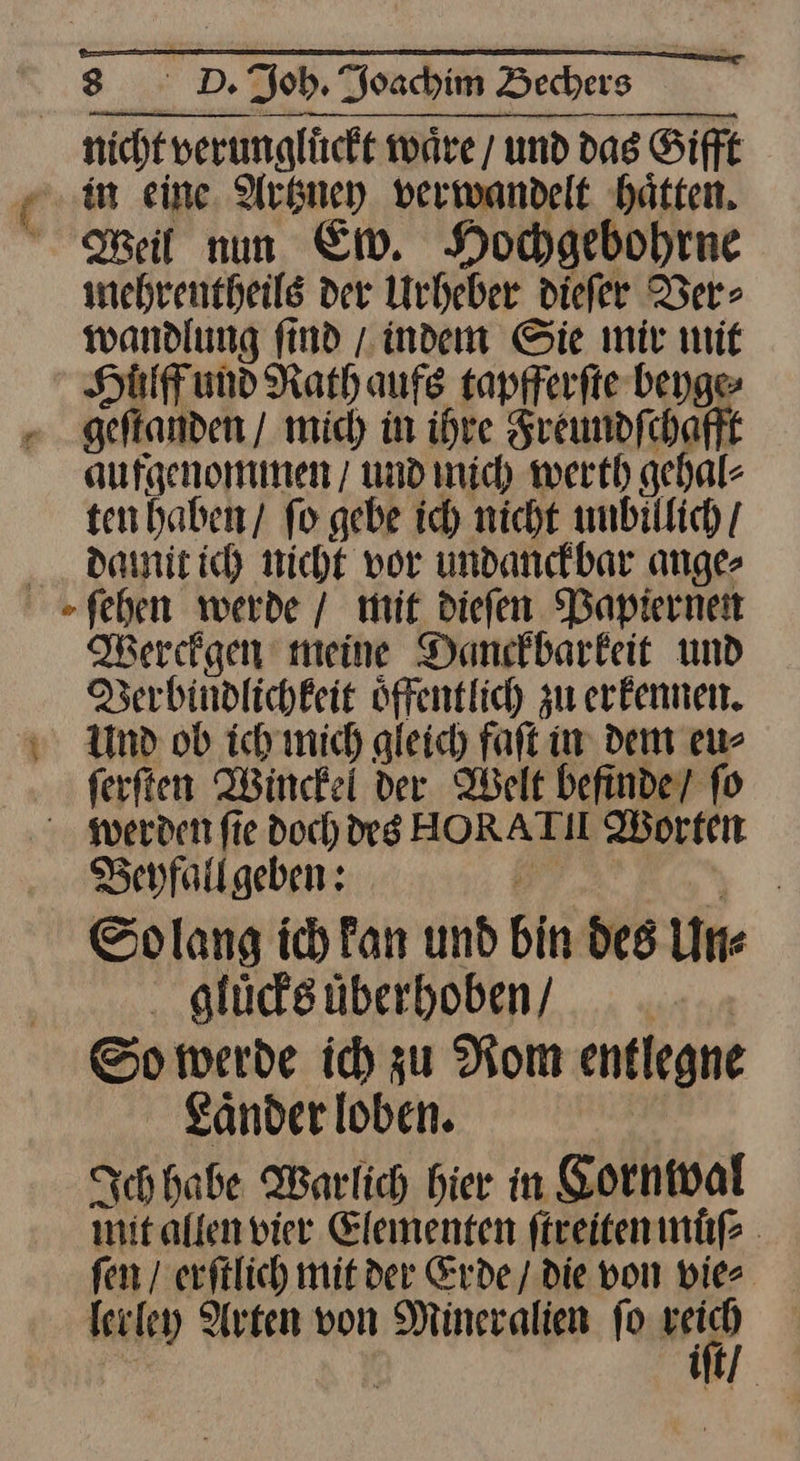 8 D. Joh. Joachim Bechers
nicht verunglůckt wåre / und das Gifft
in eine Artzney verwandelt håtten.
Weil nun Ew. Hochgebohrne
mehrentheils der Urheber dieſer Ver⸗
wandlung ſind / indem Sie mir mit
Hůlff und Rath aufs tapfferſte beyge⸗
geſtanden / mich in ihre Freundſchafft
aufgenommen / und mich werth gehal⸗
ten haben / ſo gebe ich nicht unbillich /
damit ich nicht vor undanckbar ange⸗
ſehen werde / mit dieſen Papiernen
Werckgen meine Danckbarkeit und
Verbindlichkeit oͤffentlich zu erkennen.
Und ob ich mich gleich faſt in dem eu⸗
ſerſten Winckel der Welt befinde / ſo
werden ſie doch des HORATII Worten
Beyfall geben:
So lang ich kan und bin des Un⸗
glůcks ůberhoben /
So werde ich zu Rom entlegne
Långder loben.
Ich habe Warlich hier in Cornwal
mit allen vier Elementen ſtreiten můſ⸗
ſen / erſtlich mit der Erde / die von vie⸗
lerley Arten von Mineralien ſo reich
iſt /